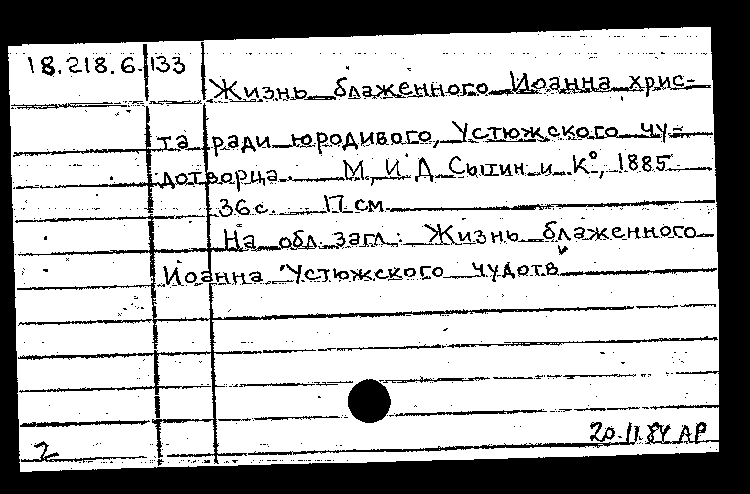 18.218.6.133
Жизнь блаженного Иоанна хрис-
та ради юродивого, Устюжского чу-
дотворца. М, И Д Сытин и К°, 1885
36 с. 17 см
На обл. загл: Жизнь блаженного
Иоанна Устюжского чудотв
2
20.11.84 АР